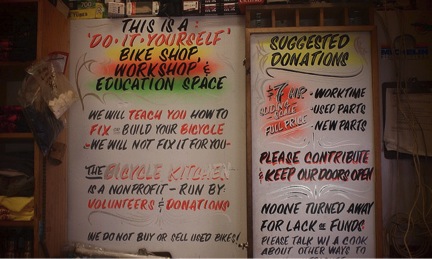 THIS IS A
'DO-IT-YOURSELF'
BIKE SHOP,
WORKSHOP &
EDUCATION SPACE
WE WILL TEACH YOU HOW TO
FIX OR BUILD YOUR BICYCLE
-WE WILL NOT FIX IT FOR YOU-
THE BICYCLE KITCHEN
IS A NONPROFIT - RUN BY
VOLUNTEERS & DONATIONS
WE DO NOT BUY OR SELL USED BIKES!
SUGGESTED
DONATIONS
$7 HR • WORKTIME
•USED PARTS
FULL PRICE •NEW PARTS
PLEASE CONTRIBUTE
& KEEP OUR DOORS OPEN
NOONE TURNED AWAY
FOR LACK OF FUNDS
PLEASE TALK W/ A COOK
ABOUT OTHER WAYS TO